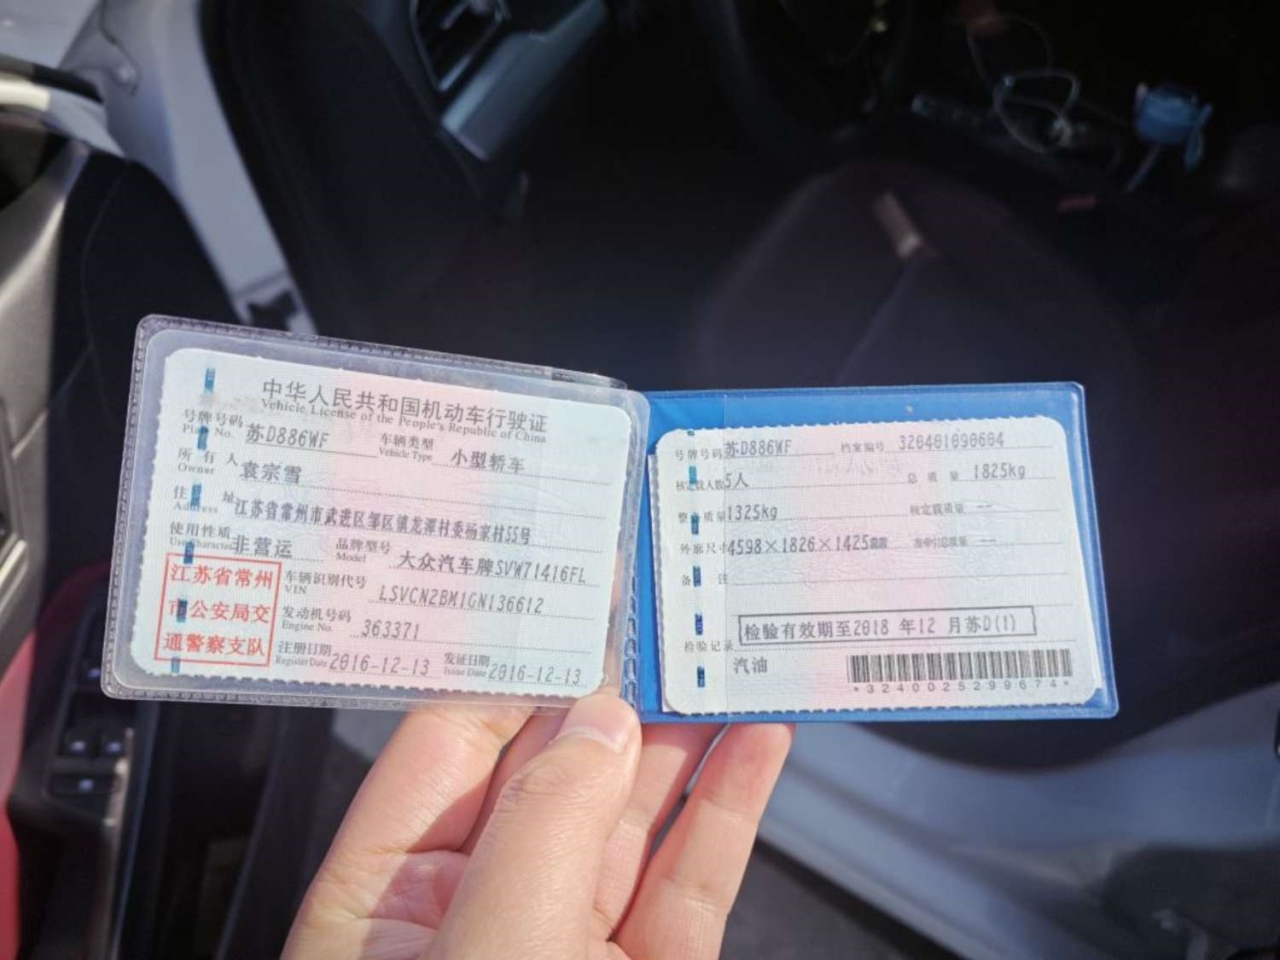 中华人民共和国机动车行驶证
Vehicle License of the People's Republic of China
号牌号码 苏D886WF 车辆类型 小型轿车
Plate No. Vehicle Type
所有人 袁宗雪
Owner
住址 江苏省常州市武进区邹区镇龙潭村委杨家村55号
Address
使用性质 非营运 品牌型号 大众汽车牌SVW71416FL
Use Character Model
江苏省常州
市公安局交
通警察支队
车辆识别代号 LSVCN2BM1GN136612
VIN
发动机号码 363371
Engine No.
注册日期 2016-12-13 发证日期 2016-12-13
Register Date Issue Date
号牌号码 苏D886WF 档案编号 320401090604
核定载人数 5人 总质量 1825kg
整备质量 1325kg 核定载质量 --
外廓尺寸 4598×1826×1425 --
备注
检验有效期至2018 年12 月苏D(1)
检验记录
汽油
*3240025299674*